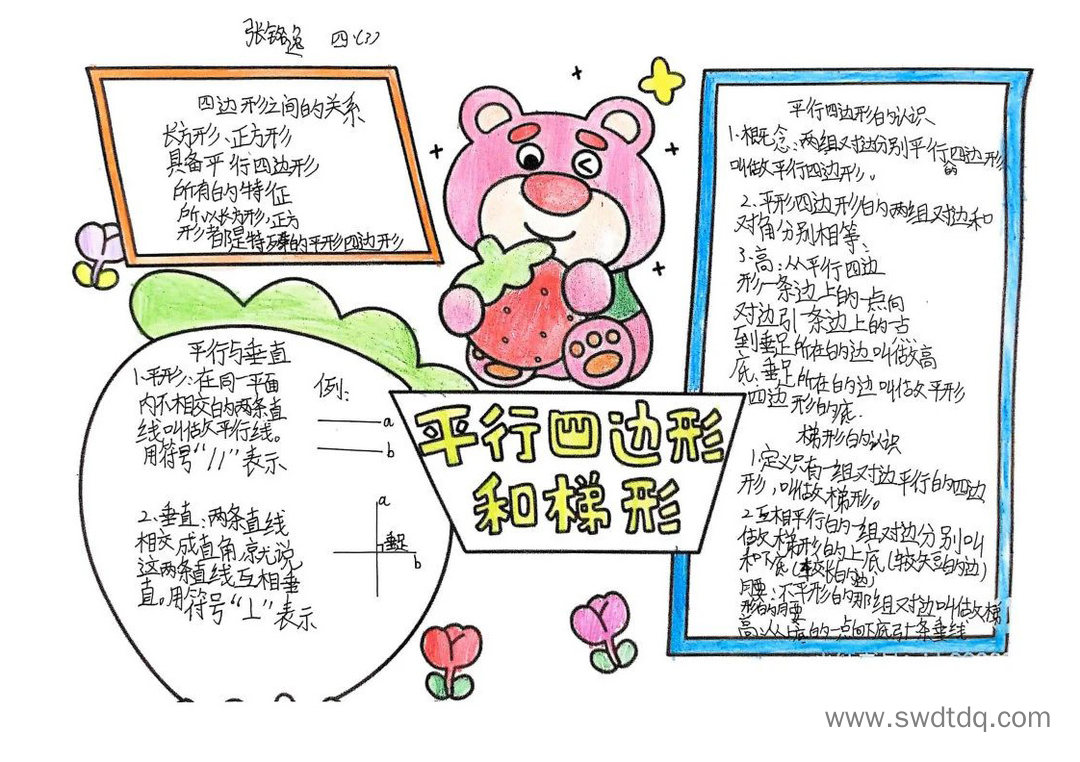 张铭逸 四(3)
四边形之间的关系
长方形、正方形
具备平行四边形
所有的特征
所以长方形,正方
形都是特殊的平形四边形
平行与垂直
1.平形:在同一平面
内不相交的两条直
线叫做平行线。
用符号“//”表示
例:
a
b
2.垂直:两条直线
相交成直角,就说
这两条直线互相垂
直。用符号“⊥”表示
a
垂足
b
平行四边形
和梯形
平行四边形的认识
1.概念:两组对边分别平行的四边形
叫做平行四边形。
2.平形四边形的两组对边和
对角分别相等、
3.高:从平行四边
形一条边上的一点向
对边引一条边上的点
到垂足所在的边叫做高
底:垂足所在的边叫做平形
四边形的底.
梯形的认识
1.定义只有一组对边平行的四边
形,叫做梯形。
2.互相平行的一组对边分别叫
做梯形的上底(较短的边)
和下底(较长的边)
腰:不平形的那组对边叫做梯
形的腰
高:从上底的一点向下底引一条垂线
www.swdtdq.com